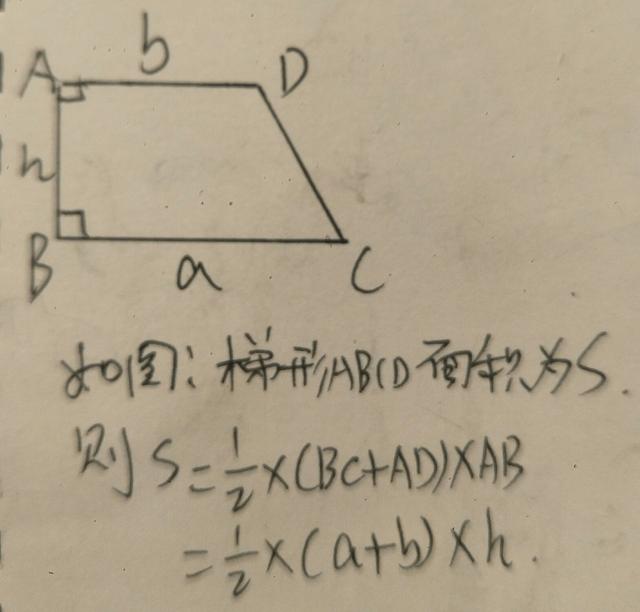 A b D
h
B a C
如图:梯形ABCD面积为S.
则S=1/2×(BC+AD)×AB
=1/2×(a+b)×h.